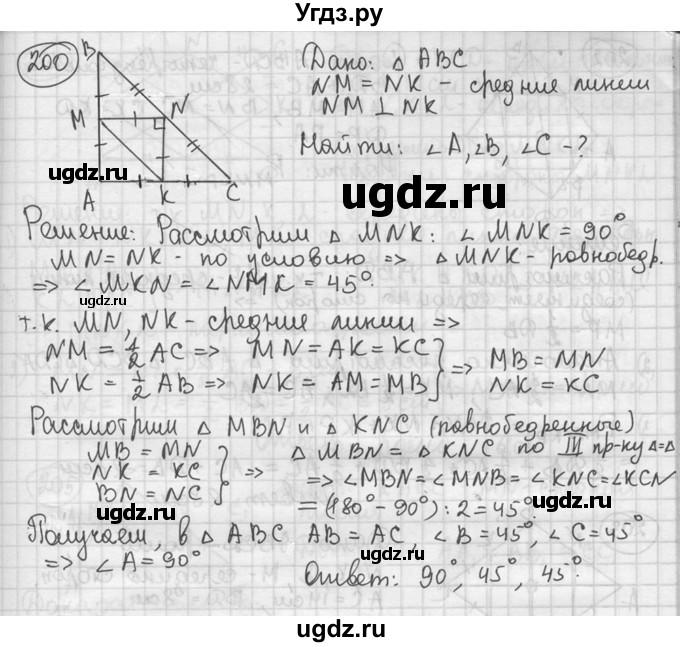 Угдз.ру
200
B
M
N
A
K
C
Дано: △ ABC
NM = NK - средние линии
NM ⊥ NK
Найти: ∠A, ∠B, ∠C - ?
ugdz.ru
ugdz.ru
Решение: Рассмотрим △ MNK: ∠ MNK = 90°
MN = NK - по условию => △ MNK - равнобедр.
=> ∠ MKN = ∠ NMK = 45°.
ugdz.ru
т.к. MN, NK - средние линии =>
NM = 1/2 AC => MN = AK = KC } => MB = MN
NK = 1/2 AB => NK = AM = MB } NK = KC
Рассмотрим △ MBN и △ KNC (равнобедренные)
MB = MN } △ MBN = △ KNC по III пр-ку △=△
NK = KC } => => ∠MBN = ∠MNB = ∠KNC = ∠KCN
BN = NC } = (180° - 90°) : 2 = 45°.
ugdz.ru
Получаем, в △ ABC AB = AC, ∠ B = 45°, ∠ C = 45°
=> ∠ A = 90°
Ответ: 90°, 45°, 45°.
ugdz.ru
ugdz.ru
ugdz.ru